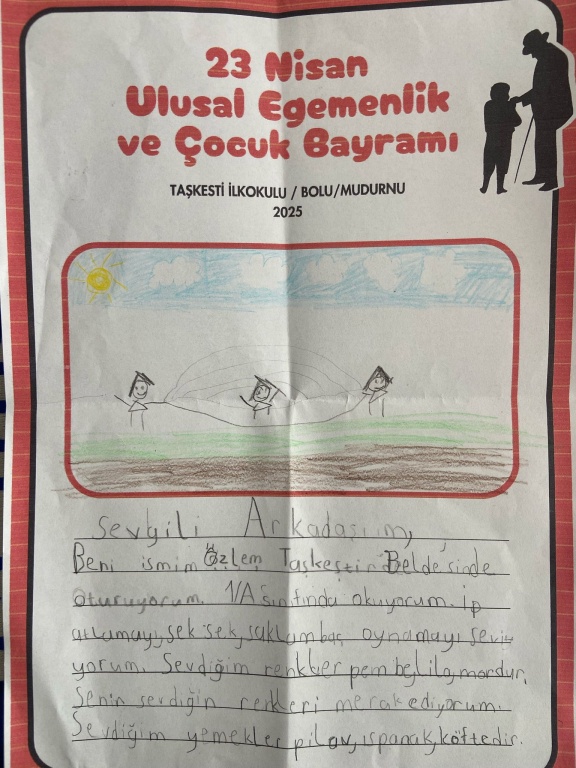 23 Nisan
Ulusal Egemenlik
ve Çocuk Bayramı
TAŞKESTİ İLKOKULU / BOLU/MUDURNU
2025
Sevgili Arkadaşım,
Beni ismim Özlem Taşkestin Belde'sinde
oturuyorum. 1/A sınıfında okuyorum. İp
atlamayı, sek sek, saklambaç oynamayı seviy
yorum. Sevdiğim renkler pembe, lila, mordur,
Senin sevdiğin renkleri merak ediyorum.
Sevdiğim yemekler pilav, ıspanak, köftedir.